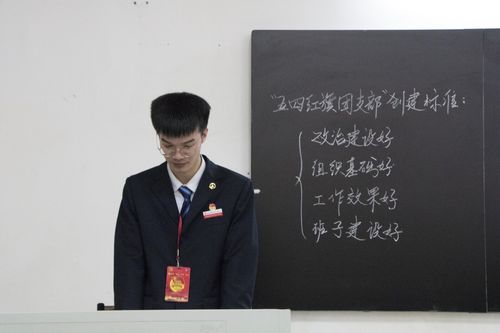 “五四红旗团支部”创建标准：
政治建设好
组织基础好
工作效果好
班子建设好